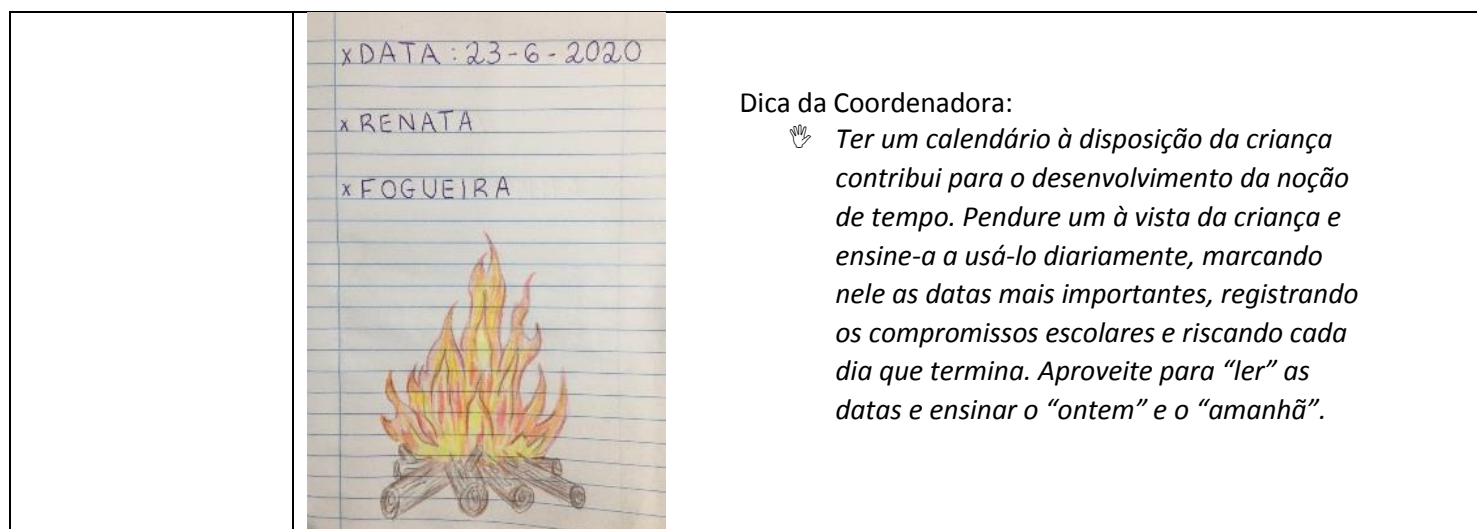 x DATA : 23-6-2020
x RENATA
x FOGUEIRA
Dica da Coordenadora:
Ter um calendário à disposição da criança
contribui para o desenvolvimento da noção
de tempo. Pendure um à vista da criança e
ensine-a a usá-lo diariamente, marcando
nele as datas mais importantes, registrando
os compromissos escolares e riscando cada
dia que termina. Aproveite para “ler” as
datas e ensinar o “ontem” e o “amanhã”.